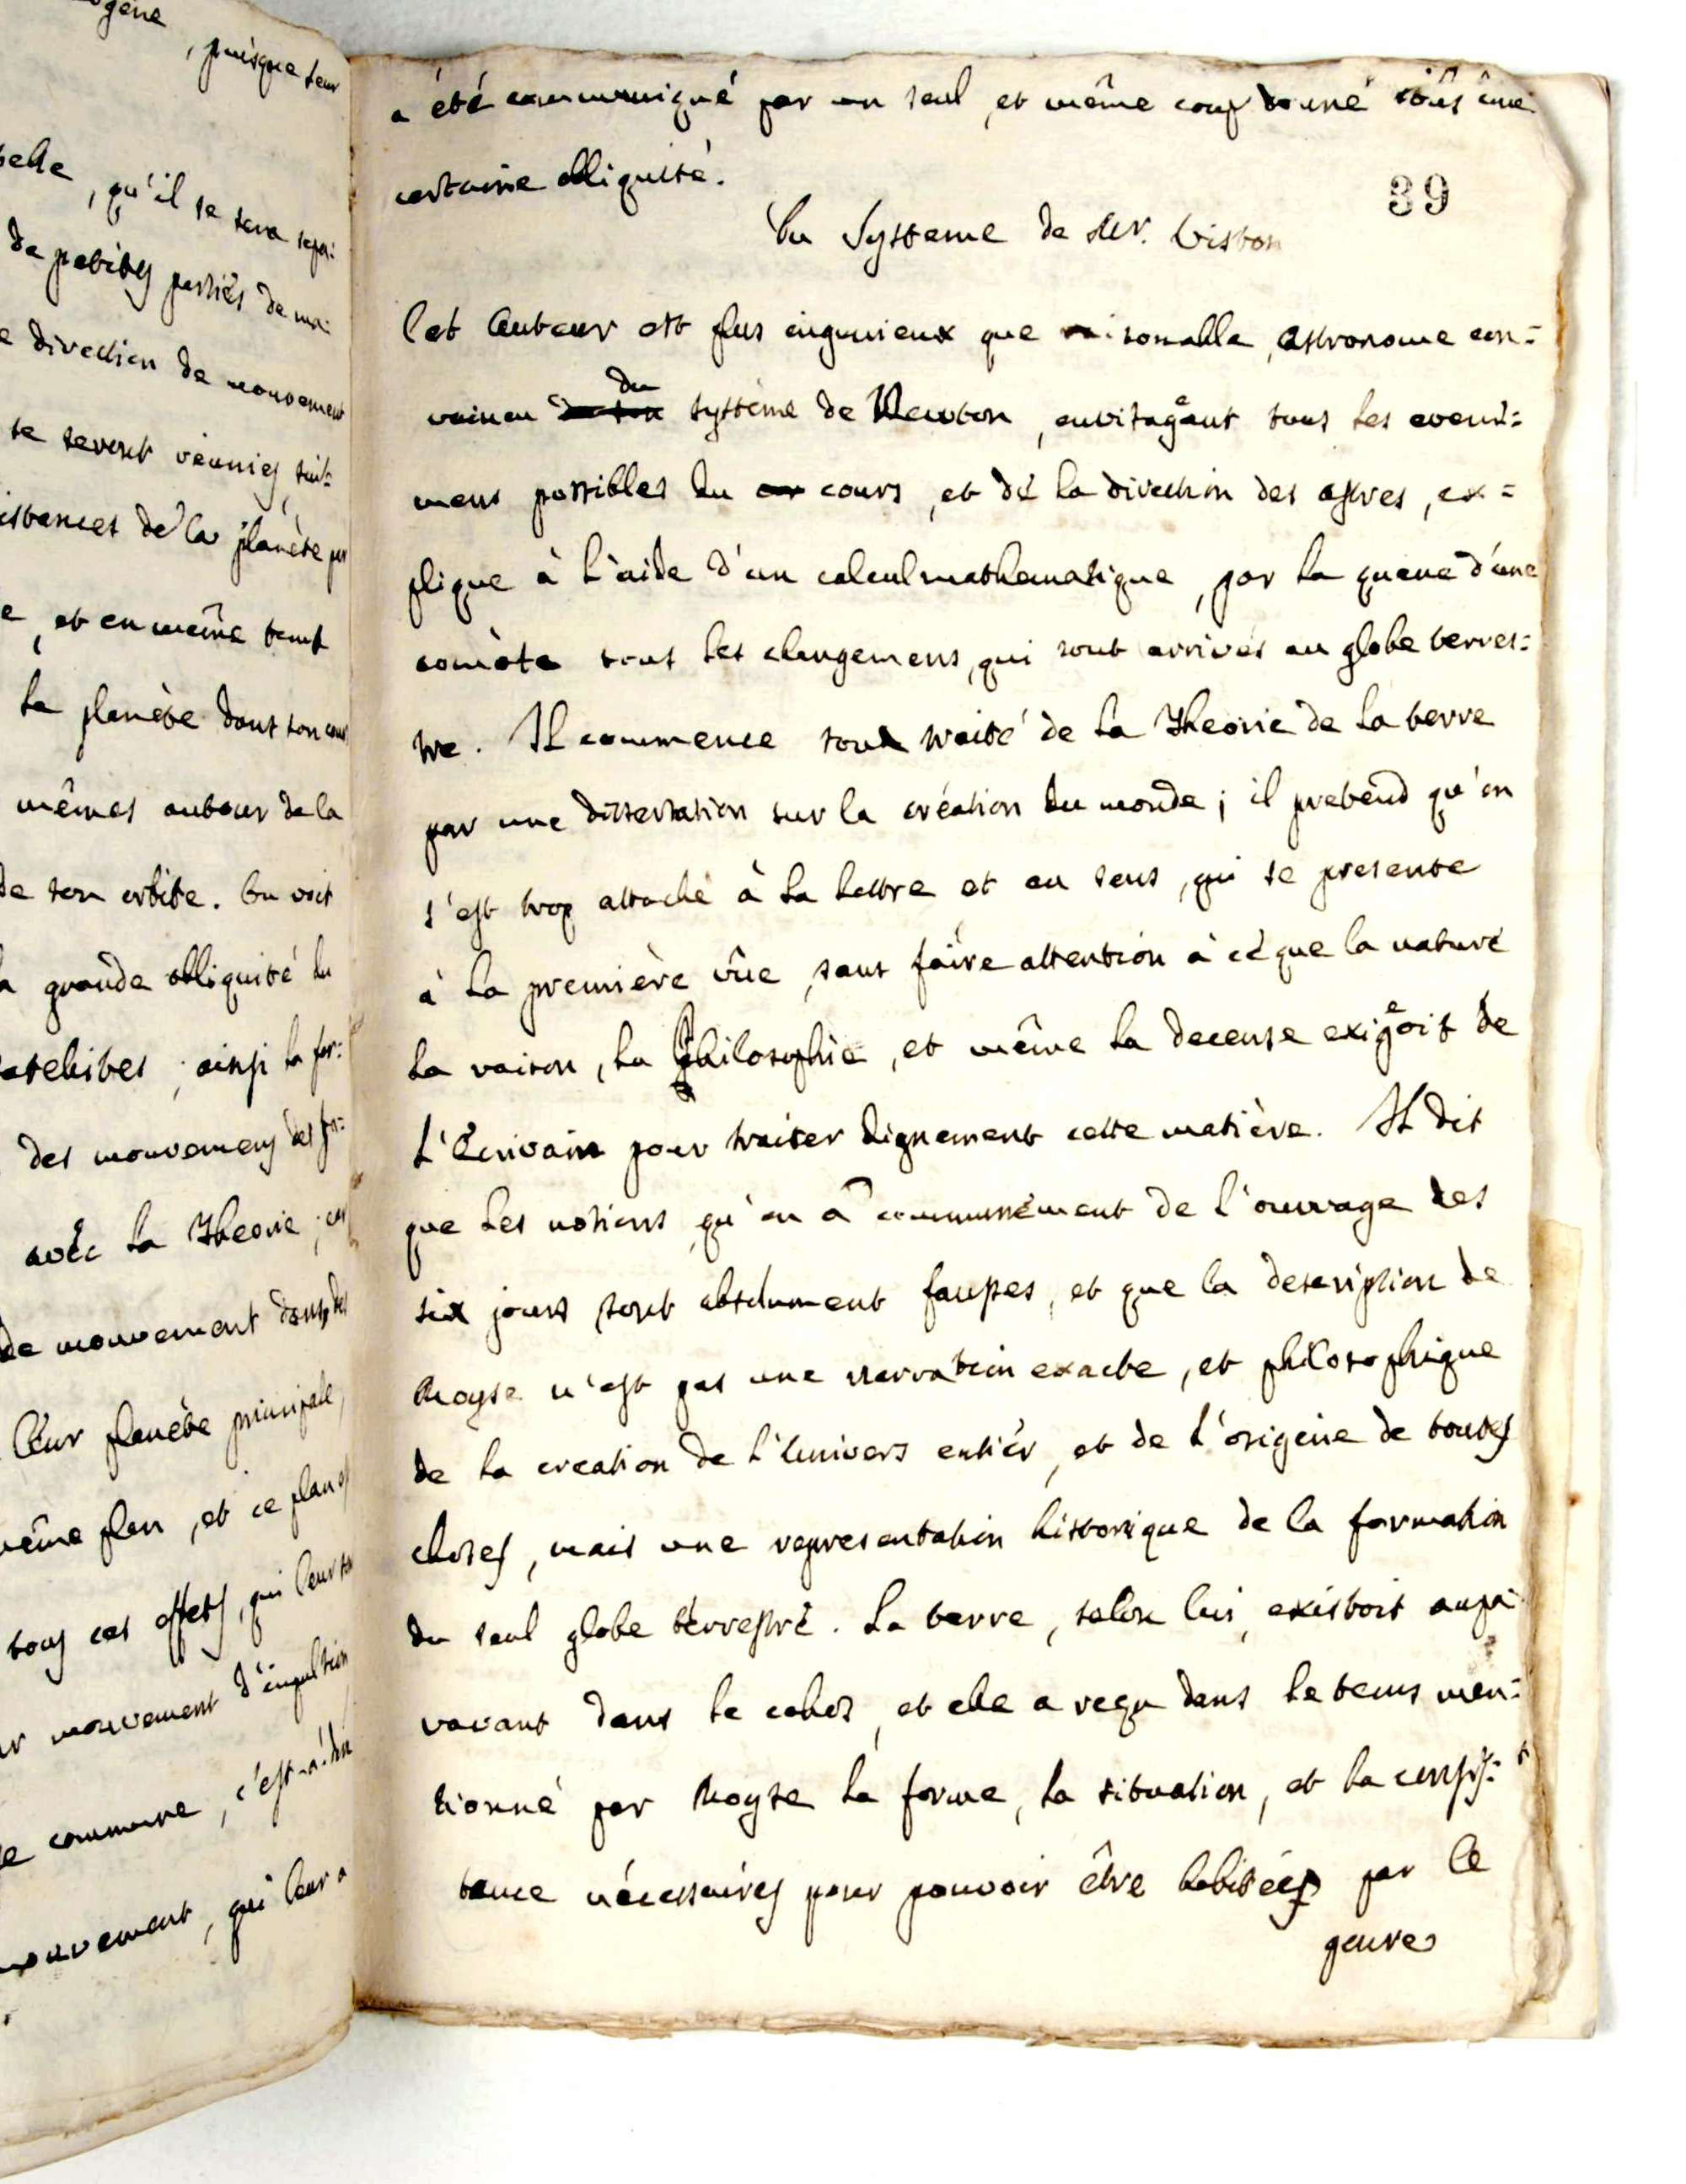 ogene, puisque leur
pelle, qu'il se sera sepa:
de petites parties de ma:
e direction de mouvement
se seront réunies, suit:
istances de la planète par
e, et en même tems
la planète dont son cour
mêmes autour de la
de son orbite. On voit
la grande obliquité du
satelites; ainsi la for:
des mouvemens des pa:
avéc la Theorie; car
de mouvement dans des
leur planète principale,
même plan, et ce plan est
tous ces effets, qui leur
ur mouvement d'impulsion
le commune, c'est-à-dire
mouvement, qui leur a
a été communiqué par un seul, et même coup donné sous une
certaine obliquité.
39
Du Systeme de Mr. Wiston
Cet Auteur est plus ingenieux que raisonable, astronome con=
vaincu du systéme de Newton, envisageant tous les evene=
mens possibles du cours, et de la direction des astres, ex=
plique à l'aide d'un calcul mathematique, par la queue d'une
comète tous les changemens, qui sont arrivés au globe terres=
tre. Il commence son traité de la Theorie de la terre
par une dissertation sur la création du monde; il pretend qu'on
s'est trop attaché à la lettre et au sens, qui se presente
à la première vûe, sans faire attention à ce que la nature
la raison, la philosophie, et même la decense exigeoit de
l'Ecrivain pour traiter dignement cette matière. Il dit
que les notions, qu'on a communément de l'ouvrage des
six jours sont absolument fausses, et que la description de
Moyse n'est pas une narration exacte, et philosophique
de la creation de l'Univers entiér, et de l'origine de toutes
choses, mais une representation historique de la formation
du seul globe térrestre. La terre, selon lui, existoit aupa=
ravant dans le cahos, et elle a reçu dans le tems men=
tionné par Moyse la forme, la situation, et la consis=
tance nécessaires pour pouvoir être habitée par le
genre